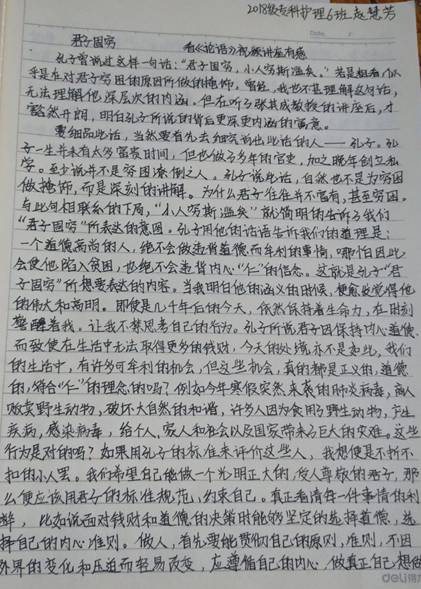 2018级专科护理6班 赵慧芳
君子固穷
看《论语》视频讲座有感
孔子曾说过这样一句话：“君子固穷，小人穷斯滥矣。”若是粗看，似
乎是在对君子穷困的原因所做的掩饰。曾经，我也不甚理解这句话，
无法理解他深层次的内涵。但在听了张其成教授的讲座后，才
豁然开朗，明白孔子所说的背后更深更内涵的寓意。
要细品此话，当然要首先去细究说出此话的人——孔子。孔
子一生并未有太多富贵时间，但也做了多年的官吏，加之晚年创立私
学。至少说并不是穷困潦倒之人。孔子说此话，自然也不是为穷困
做掩饰，而是深刻的讲解。为什么君子往往并不富有，甚至穷困。
与此句相联系的下局，“小人穷斯滥矣”就简明的告诉了我们
“君子固穷”所表达的意图。孔子用他的话语告诉我们的道理是：
一个道德高尚的人，绝不会做违背道德而牟利的事情，哪怕因此
会使他陷入贫困，也绝不会违背内心“仁”的信念。这就是孔子“君
子固穷”所想要表达的内容。当我明白他的涵义的时候，便愈发觉得他
的伟大和高明。即使是几千年后的今天，依然保持着生命力，在时刻
警醒着我。让我不禁思考自己的行为。孔子所说君子因保持内心道德
而致使在生活中无法取得更多的钱财，今天的处境亦不是如此，我们
的生活中，有许多可牟利的机会，但这些机会，真的都是正义的，道德
的，符合“仁”的理念的吗？例如今年寒假突然来袭的肺炎病毒，商人
贩卖野生动物，破坏大自然的和谐，许多人因为食用了野生动物，产生
疾病，感染病毒，给个人、家人和社会以及国家带来了巨大的灾难。这些
行为是对的吗？如果用孔子的标准来评价这些人，我想便是不折不
扣的小人罢。我们希望自己能做一个光明正大的，受人尊敬的君子，那
么便应该用君子的标准规范，约束自己。真正看清每一件事情的利
弊，比如说面对钱财和道德的决策时能够坚定的选择道德，选
择自己的内心准则。做人，首先要能贯彻自己的原则，准则，不因
外界的变化和压迫而轻易改变，应遵循自己的内心，做真正自己想做